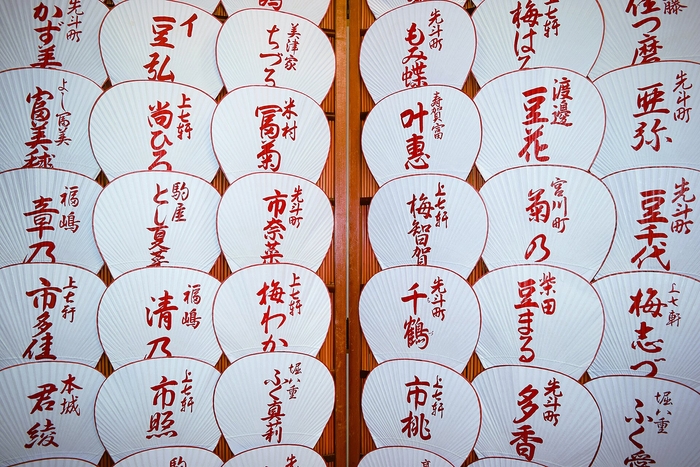 先斗町 かず美
イ 豆弘
美津家 ちづる
先斗町 もみ蝶
梅はる
佳つ磨
よし冨美 富美毬
上七軒 尚ひろ
米村 冨菊
寿賀富 叶惠
渡邊 豆花
先斗町 亜弥
福嶋 章乃
駒屋 とし夏菜
先斗町 市奈菜
上七軒 梅智賀
宮川町 菊乃
先斗町 豆千代
上七軒 市多佳
福嶋 清乃
上七軒 梅わか
先斗町 千鶴
柴田 豆まる
上七軒 梅志づ
本城 君綾
上七軒 市照
堀八重 ふく真莉
上七軒 市桃
先斗町 多香
堀八重 ふく愛